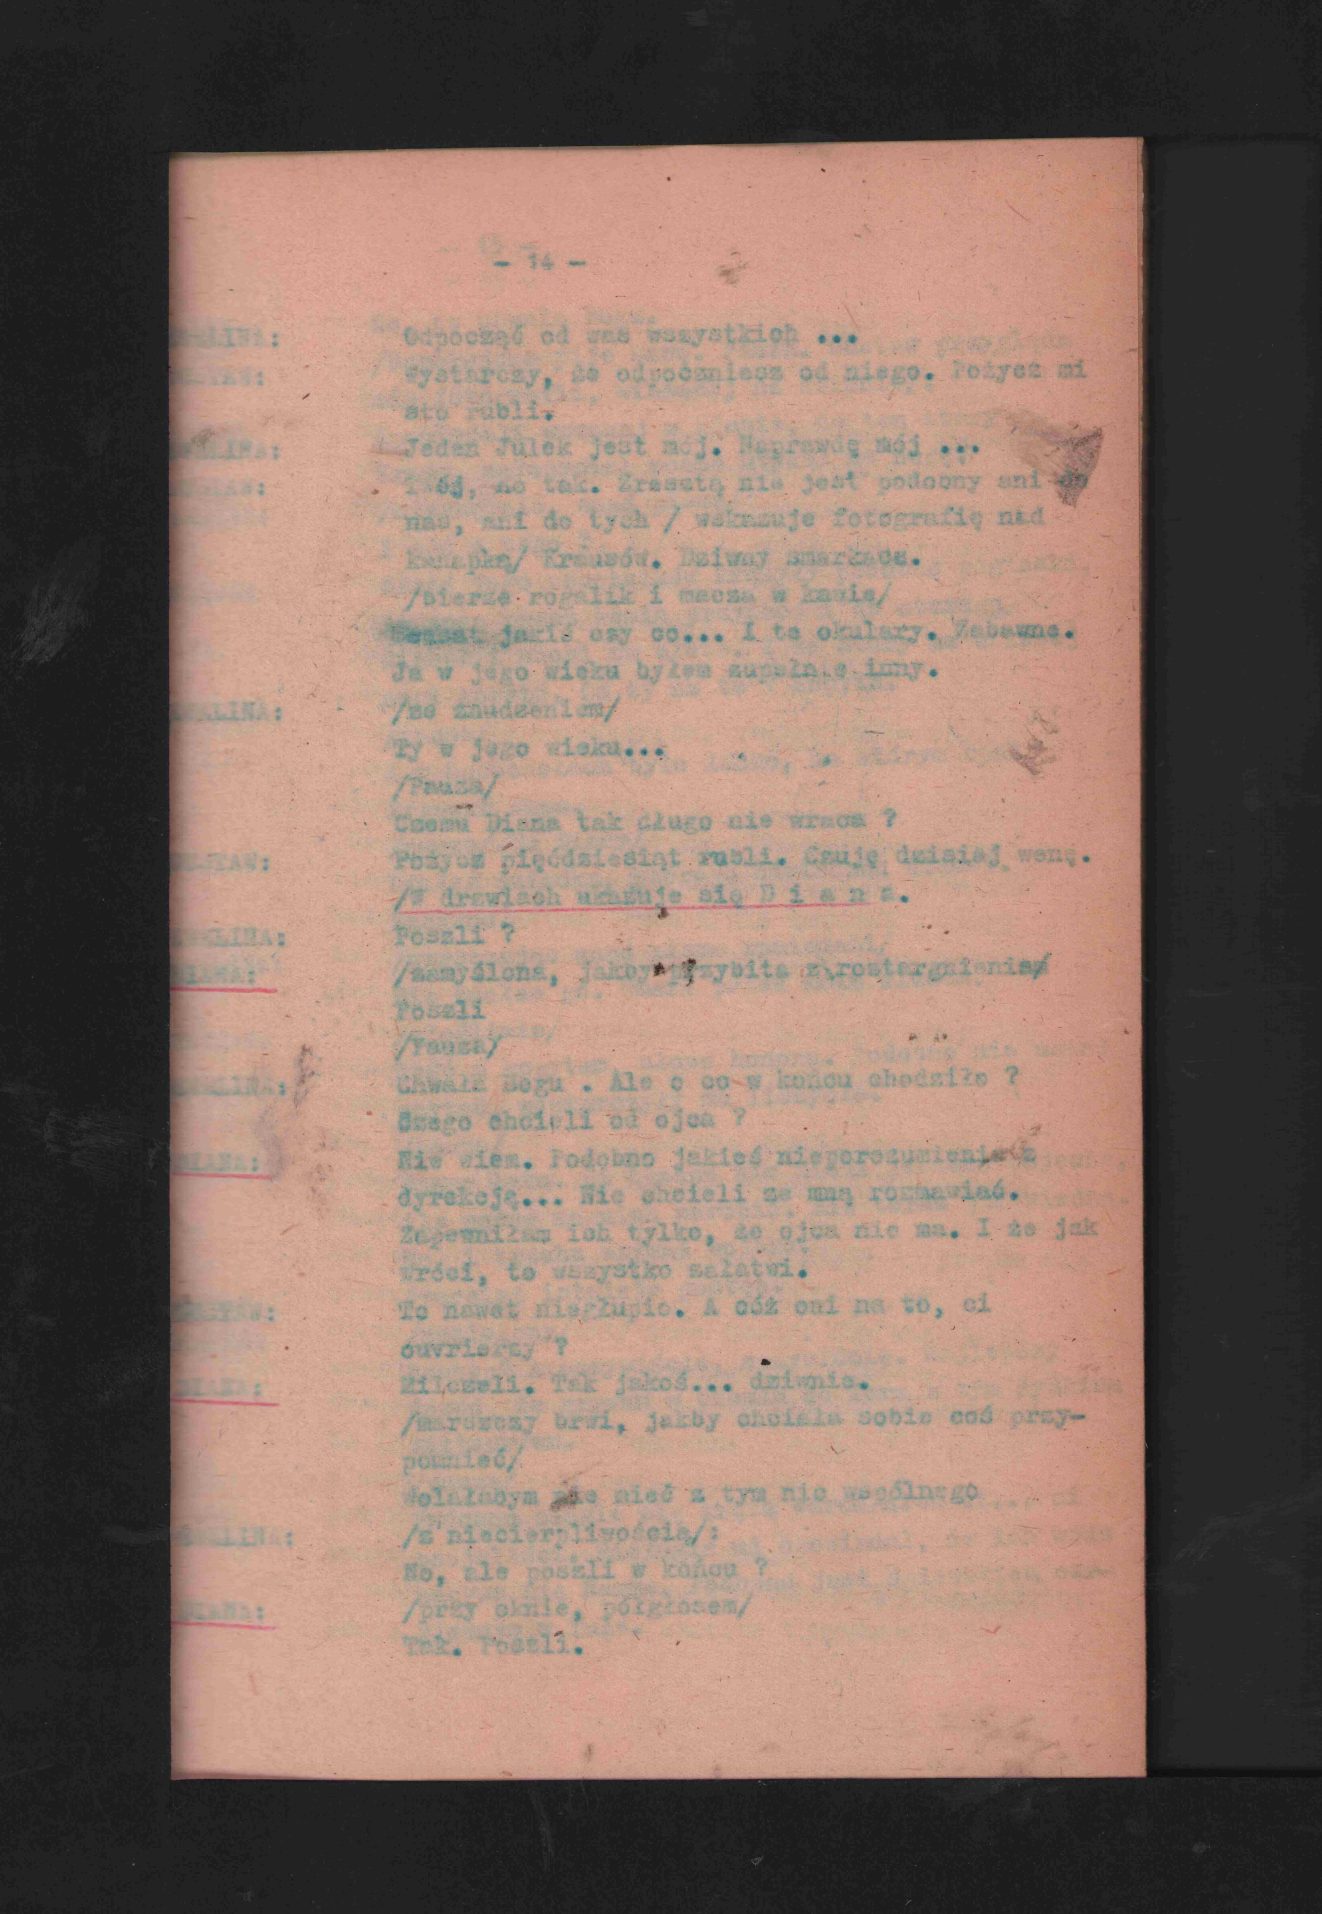 - 14 -
EWELINA: Odpocząć od was wszystkich ...
GUSTAW: Wystarczy, że odpoczniesz od niego. Pożycz mi
sto rubli.
EWELINA: Jeden Julek jest mój. Naprawdę mój ...
GUSTAW: Twój, no tak. Zresztą nie jest podobny ani do
nas, ani do tych / wskazuje fotografię nad
kanapką/ Krausów. Dziwny smarkacz.
/bierze rogalik i macza w kawie/
jakiś czy co... I te okulary. Zabawne.
Ja w jego wieku byłem zupełnie inny.
EWELINA: /ze znudzeniem/
Ty w jego wieku...
/Pauza/
Czemu Diana tak długo nie wraca ?
GUSTAW: Pożycz pięćdziesiąt rubli. Czuję dzisiaj wenę.
/W drzwiach ukazuje się D i a n a.
EWELINA: Poszli ?
DIANA: /zamyślona, jakby przybita z roztargnieniem/
Poszli
/Pauza/
EWELINA: Chwała Bogu . Ale o co w końcu chodziło ?
Czego chcieli od ojca ?
DIANA: Nie wiem. Podobno jakieś nieporozumienie z
dyrekcją... Nie chcieli ze mną rozmawiać.
Zapewniłam ich tylko, że ojca nie ma. I że jak
wróci, to wszystko załatwi.
GUSTAW: To nawet niegłupio. A cóż oni na to, ci
ouvrierzy ?
DIANA: Milczeli. Tak jakoś... dziwnie.
/marszczy brwi, jakby chciała sobie coś przy-
pomnieć/
Wolałabym nie mieć z tym nic wspólnego
EWELINA: /z niecierpliwością/:
No, ale poszli w końcu ?
DIANA: /przy oknie, półgłosem/
Tak. Poszli.